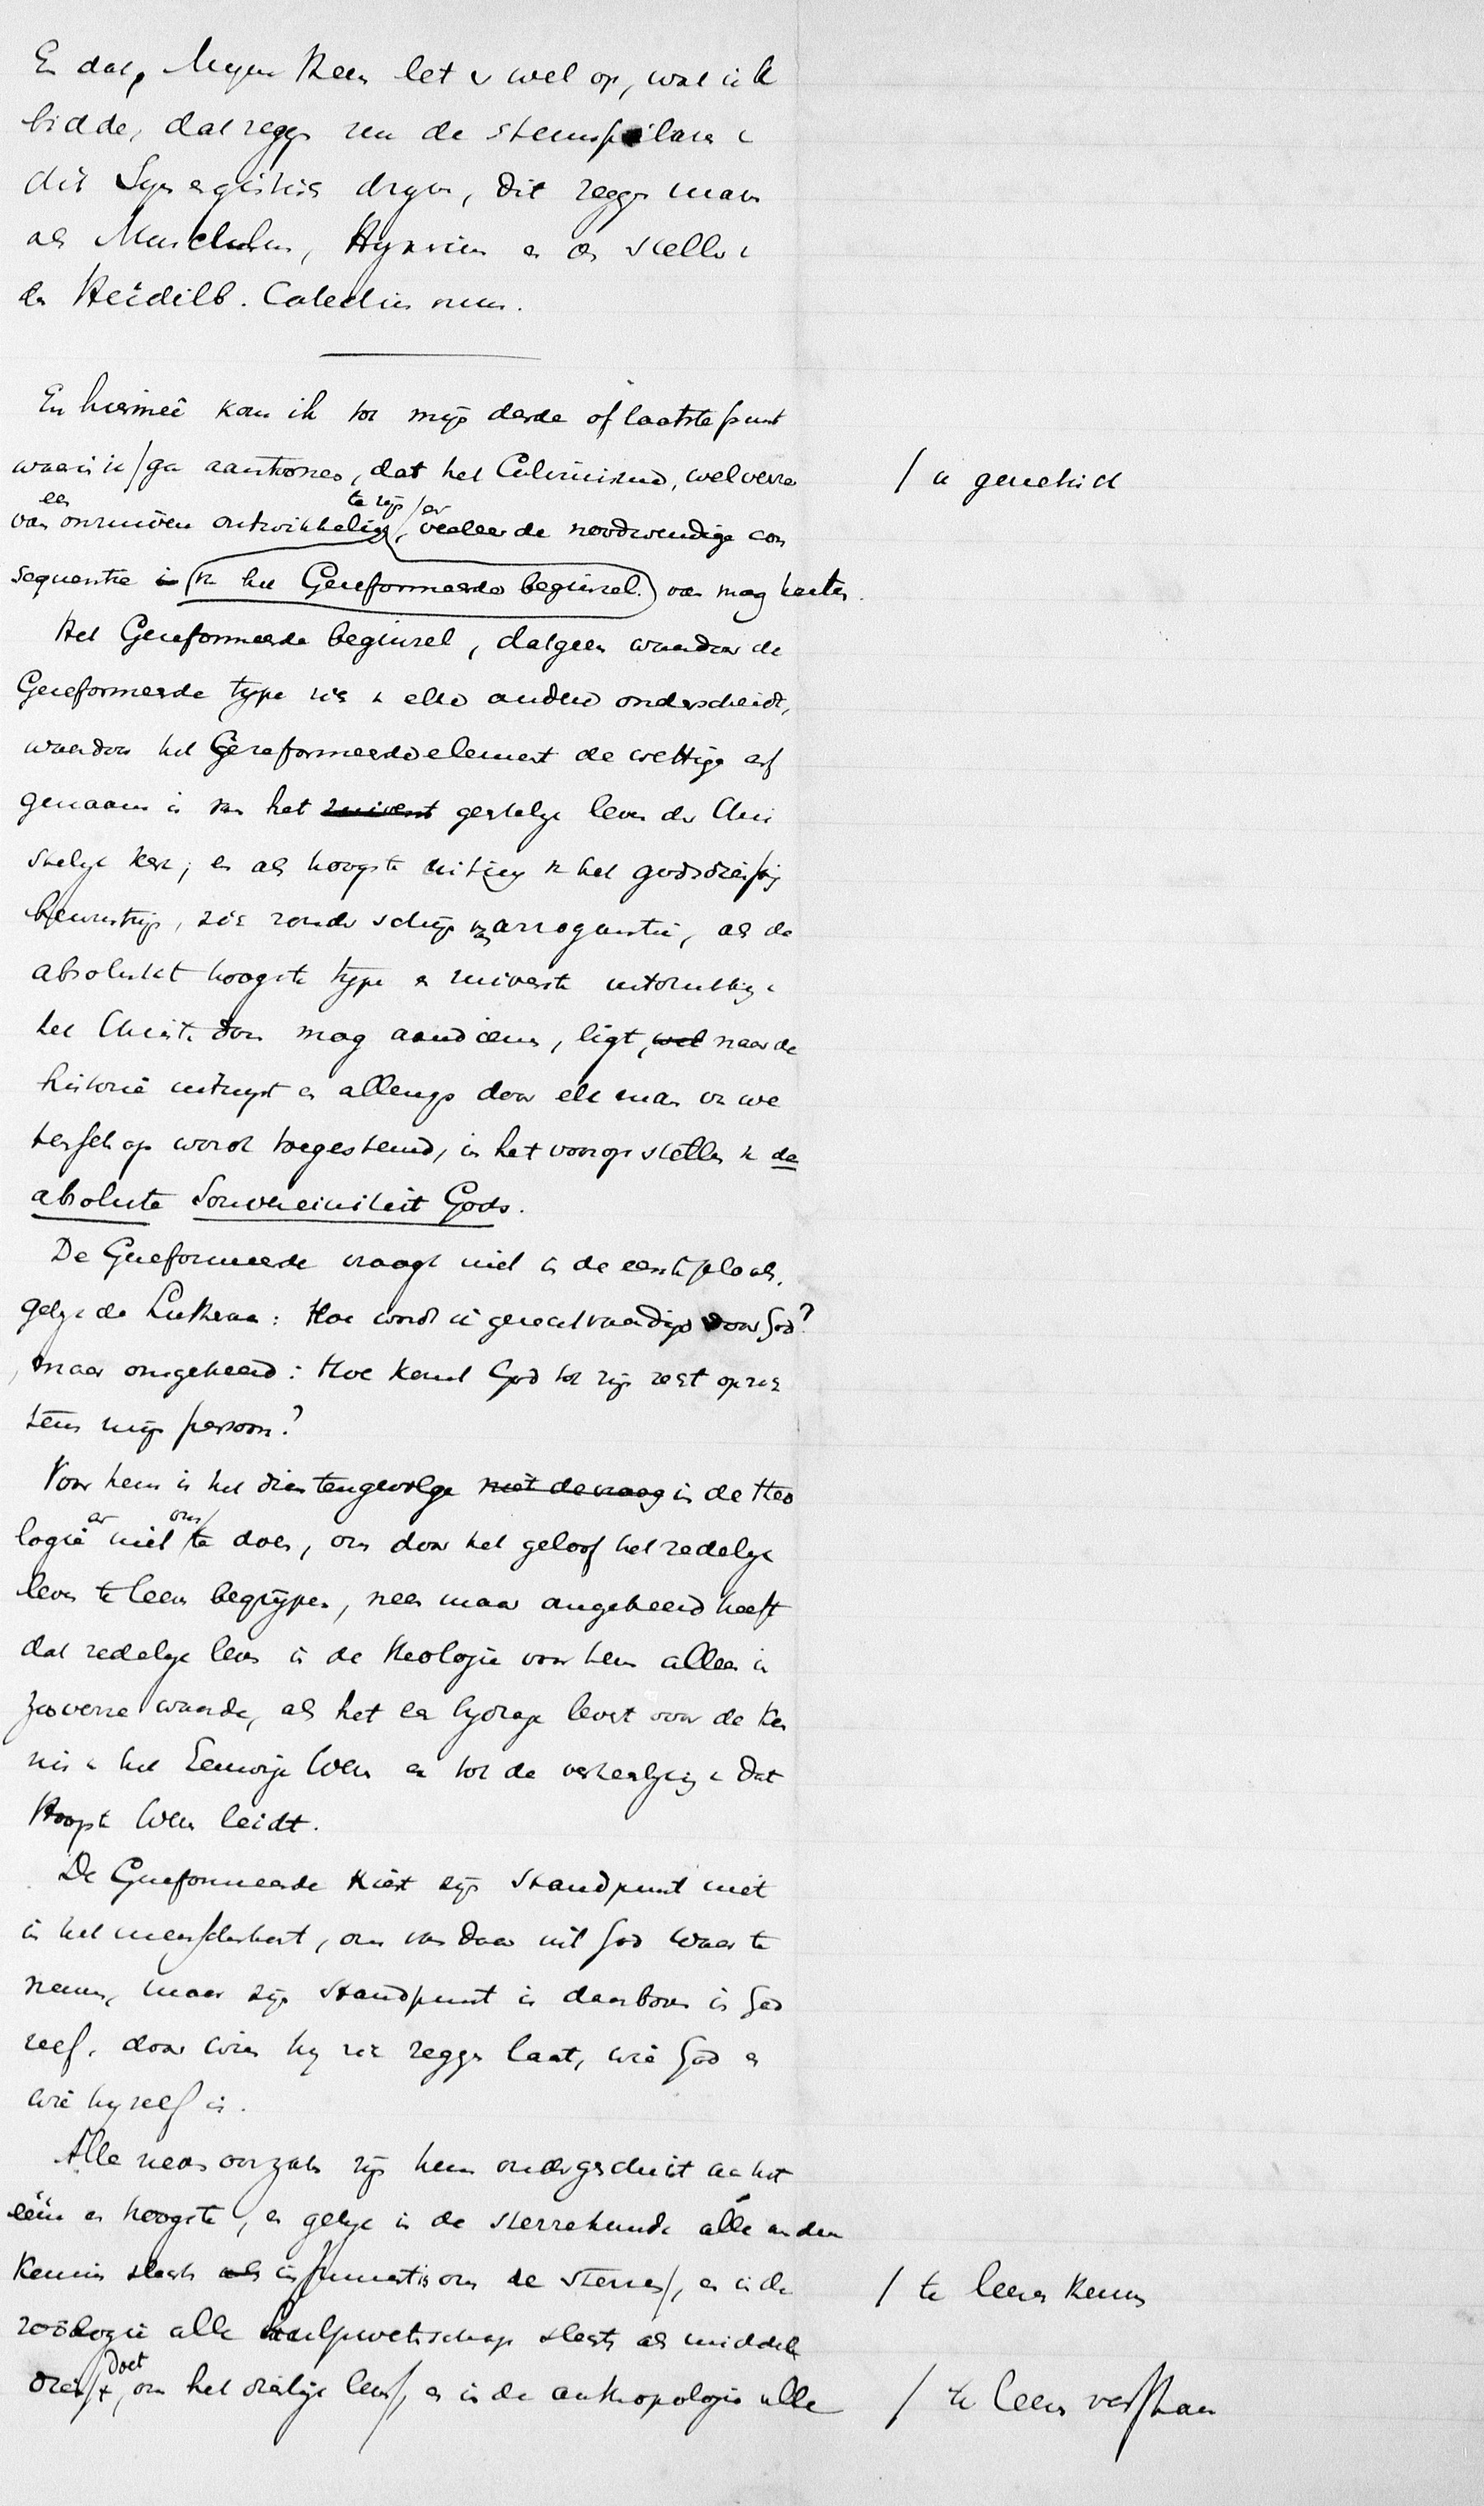 En dat, Mijne Heeren let u wel op, wat ik u
bidde, dat zegge nu de steunpilaren v
dit Synergistisch drijven, dit zeggen mannen
als Musculus, Hyperius en de steller v
den Heidelb. Catechismus.
En hiermeê kom ik tot mijn derde of laatste punt
waarin ik / ga aantoonen, dat het Calvinisme, wel verre / u genoteerd
van een onzuivere ontwikkeling te zijn, / er veeleer de noodwendige con
sequentie is (v. het Gereformeerde beginsel.) van mag heeten.
Het Gereformeerde beginsel, datgeen waardoor de
Gereformeerde type zich v elke andere onderscheidt,
waardoor het Gereformeerde element de wettige erf
genaam is van het zuivere geestelijk leven der Chri
stelijke kerk, en als hoogste uiting v het godsdienstig
bewustzijn, zich zonder schijn van arrogantie, als de
absoluut hoogste type en zuiverste uitdrukking v
het Christendom mag aandienen, ligt, wel naar de
historie uitwijst en allengs door elk man van we
tenschap wordt toegestemd, in het voorop stellen v de
absolute Souvereiniteit Gods.
De Gereformeerde vraagt niet in de eerste plaats,
gelijk de Lutheraan: Hoe word ik gerechtvaardigd voor God?
, maar omgekeerd: Hoe komt God tot zijn recht op zich
tens mijn persoon?
Voor hem is het dientengevolge niet de vraag in de theo
logie er niet om / te doen, om door het geloof het redelijk
leven te leeren begrijpen, neen maar omgekeerd heeft
dat redelijk leven in de theologie voor hem alleen in
zooverre waarde, als het een bijdrage levert voor de ken
nis v het Eeuwige Wezen en tot de verheerlijking v dat
Hoogste Wezen leidt.
De Gereformeerde kiest zijn standpunt niet
in het menschenhart, om van daar uit God waar te
nemen, maar zijn standpunt is daarboven in God
zelf, door wien hij zich zeggen laat, wie God en
wie hijzelf is.
Alle neven oorzaken zijn hem ondergeschikt aan het
ééne en hoogste, en gelijk in de sterrekunde alle andere
kennis slechts als instrument is om de sterren /, en in de / te leeren kennen
zoölogie alle hulpwetenschap slechts als middel
dienst doet, om het dierlijk leven /, en in de anthropologie alle / te leeren verstaan